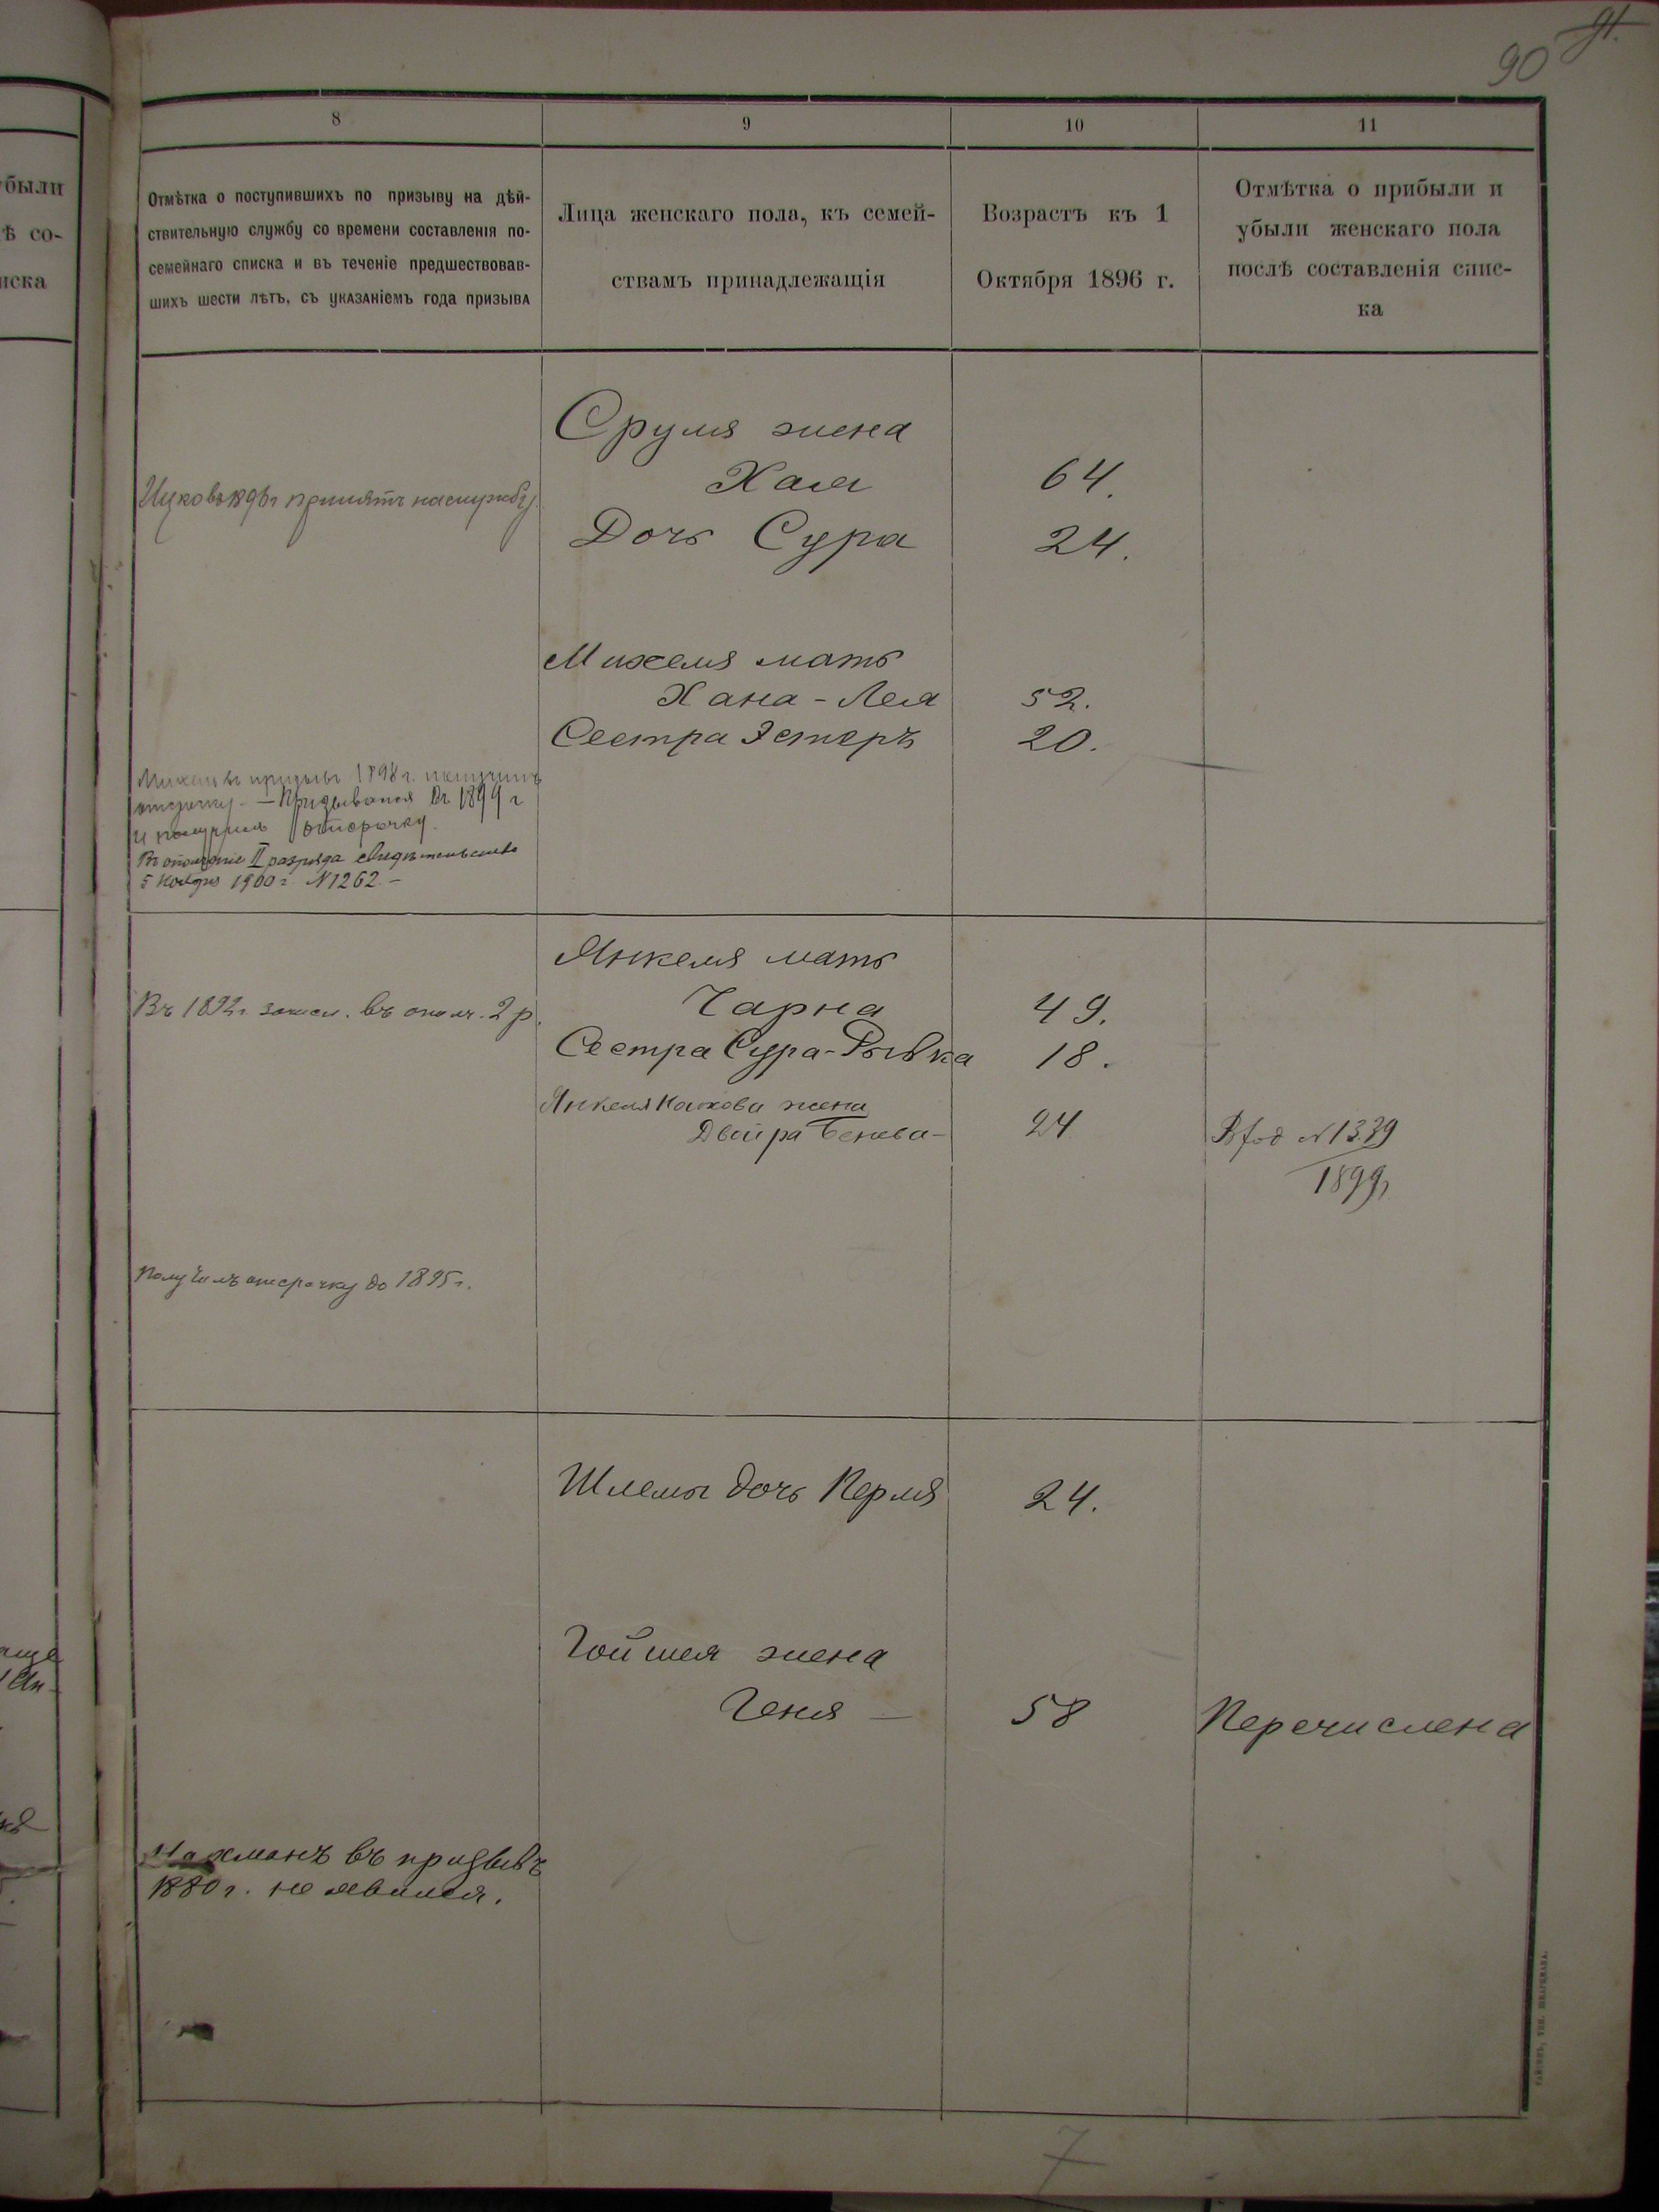 91.
90
8
9
10
11
Отмѣтка о поступившихъ по призыву на дѣй-
ствительную службу со времени составленія по-
семейнаго списка и въ теченіе предшествовав-
шихъ шести лѣтъ, съ указаніемъ года призыва
Лица женскаго пола, къ семей-
ствамъ принадлежащія
Возрастъ къ 1
Октября 1896 г.
Отмѣтка о прибыли и
убыли женскаго пола
послѣ составленія спис-
ка
были
ѣ со-
иска
Сруля жена
Хая 64.
Ицко въ 1896 г принятъ на службу.
Дочь Сура 24.
Михеля мать
Хана-Лея 52.
Сестра Эстеръ 20.
Михель въ призывъ 1898 г. получилъ
отсрочку. — Призывался въ 1899 г
и получилъ отсрочку.
Въ ополченіе II разряда свидѣтельство
5 Ноября 1900 г. N 1262. —
Янкеля мать
Въ 1892 г. зачисл. въ ополч. 2 р.
Чарна 49.
Сестра Сура-Рывка 18.
Янкеля жена
Двойра 24
N 1339
1899
Получилъ отсрочку до 1895 г.
Шлемы дочь Перля 24.
Гойшея жена
Геня — 58 Перечислена
Нахманъ въ призывъ
1880 г. не явился.
7